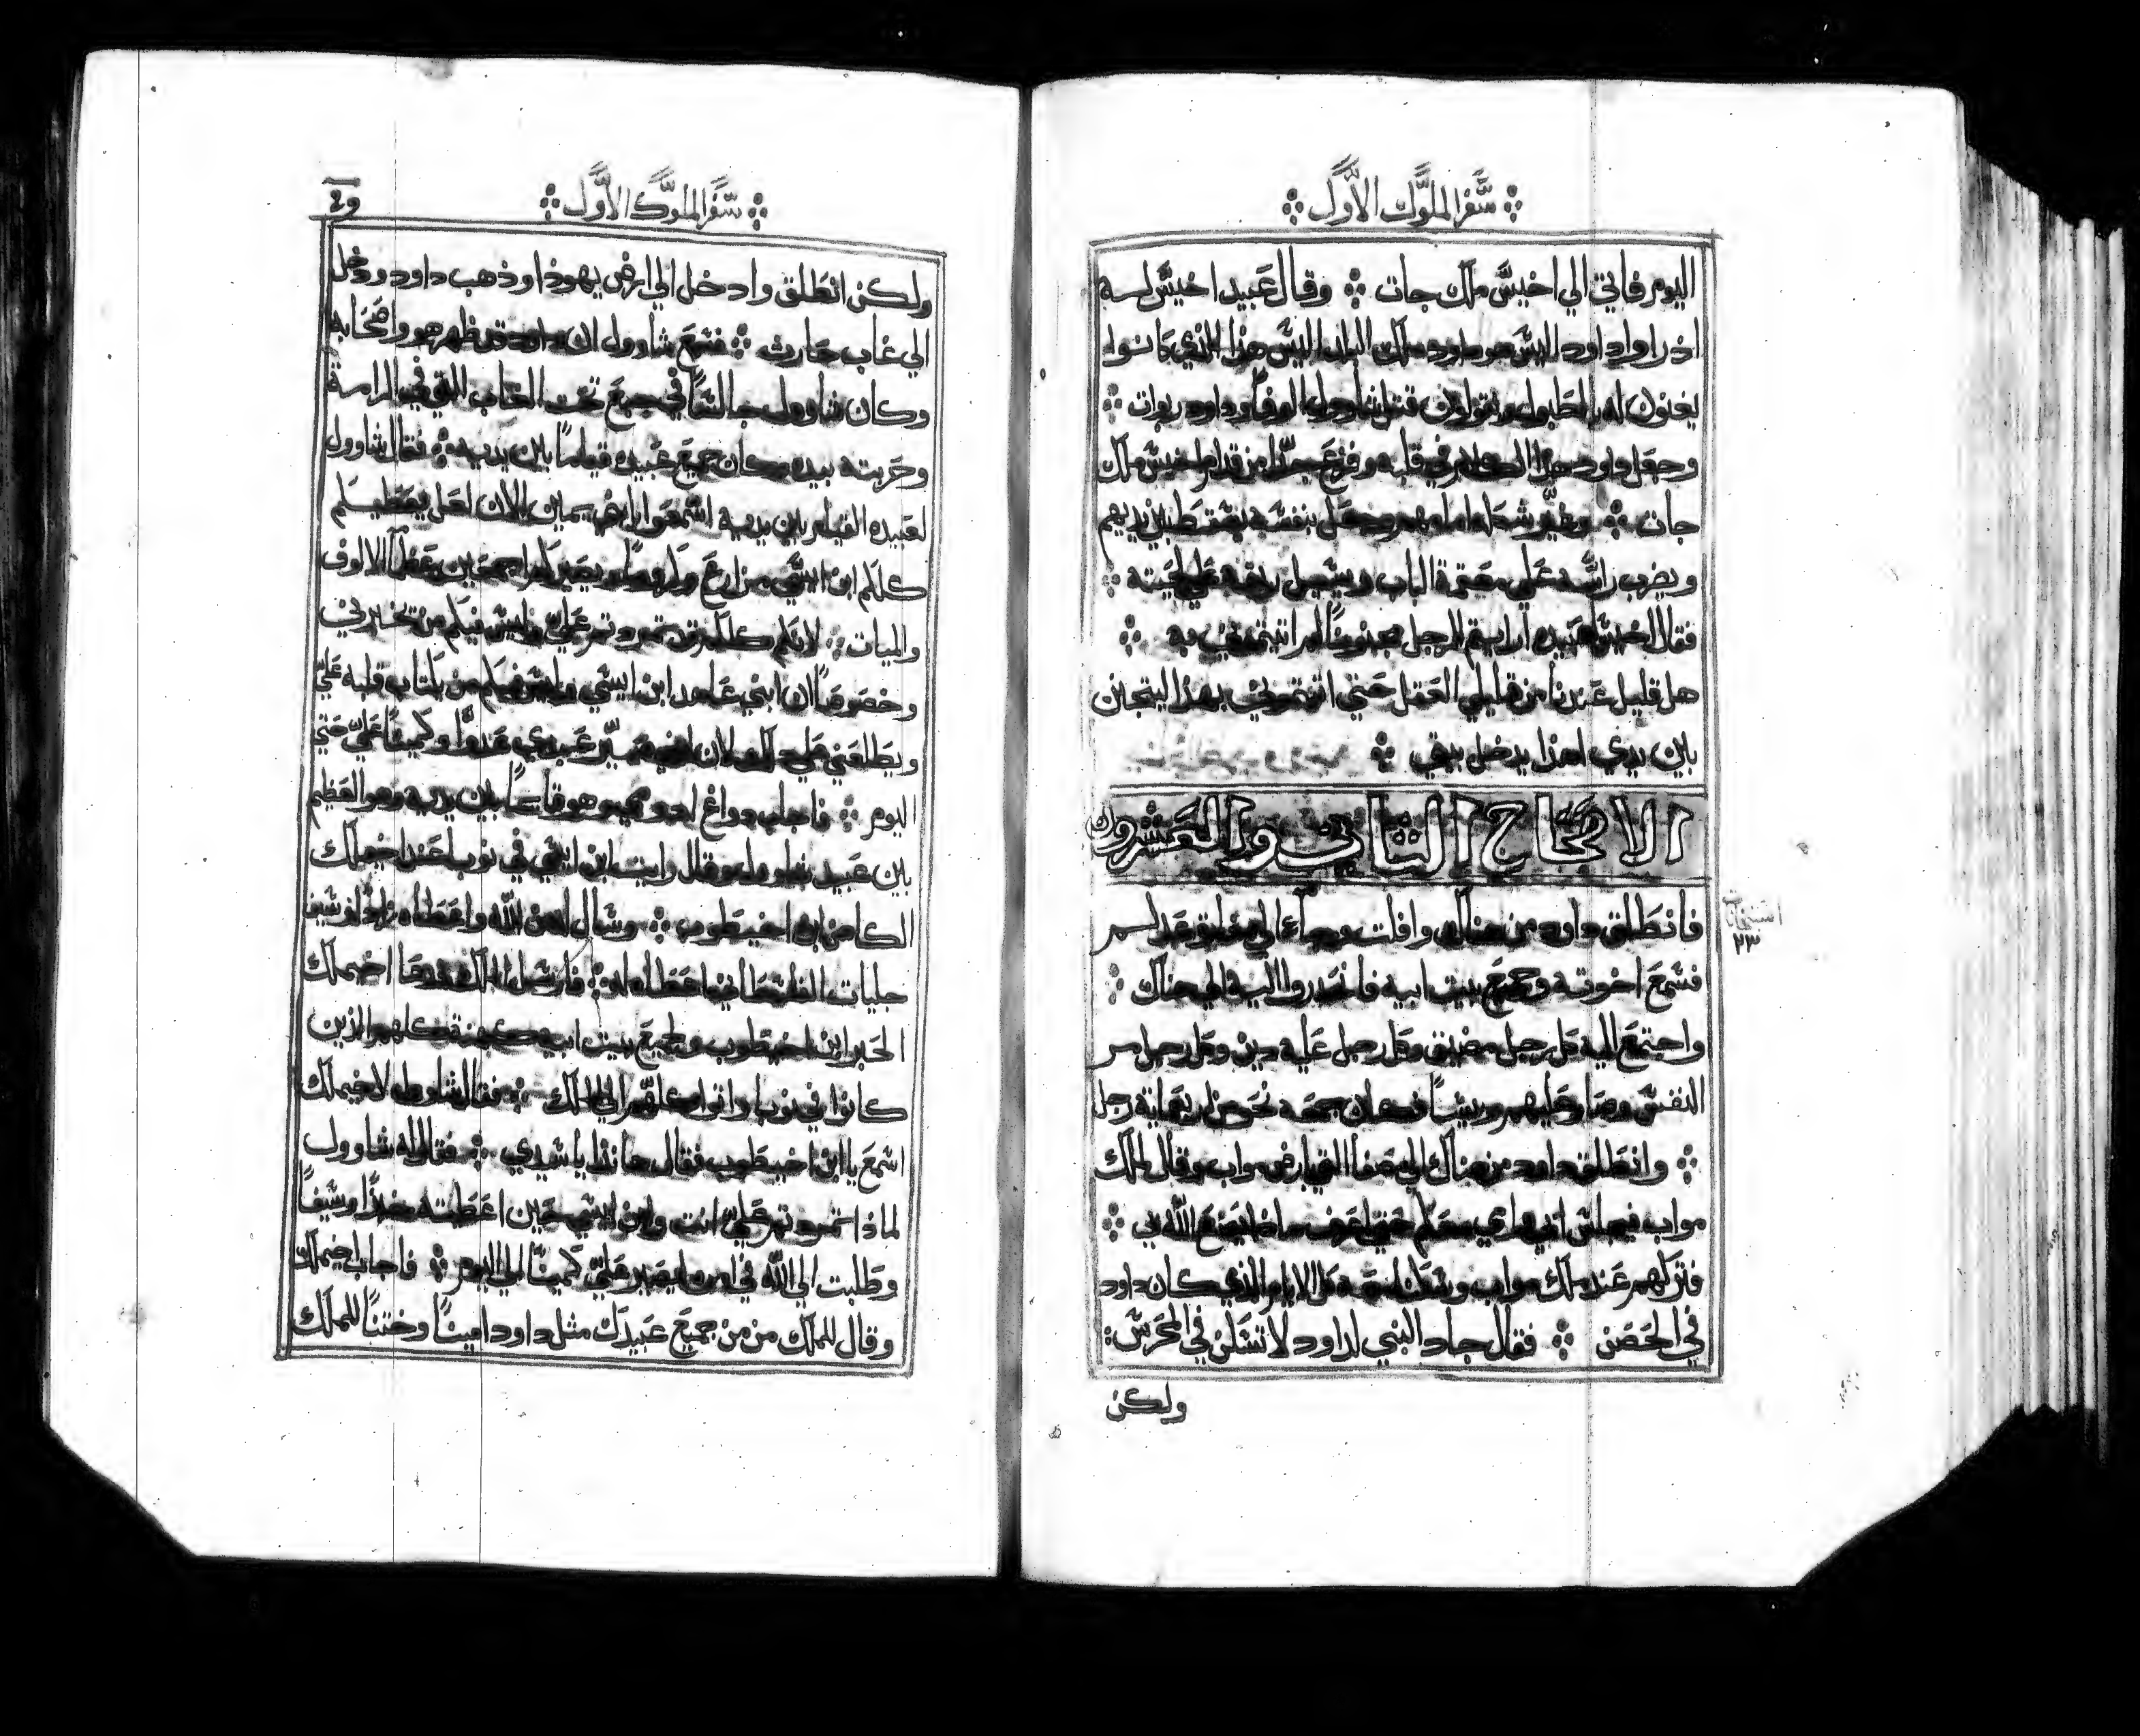 سفر الملوك الاول
اليوم فاتي الي اخيش ملك جات وقال عبيد اخيش له
اذ راوا داود اليس هو داود ملك البلد اليس هذا الذي كانوا
يغنون له بالطبول ويقولون قتل شاوول الوفاً وداود ربوات
وجعل داود هذا الكلام في قلبه وفزع جداً من قدام اخيش ملك
جات وغير شكله امامهم وجعل بنفسه يسقط بين يديهم
ويضرب راسه علي معتمة الباب ويسيل ريقه علي لحيته
فقال اخيش لعبيده ارايتم الرجل مجنوناً لم اتيتموني به
هل قليل عندنا من قليلي العقل حتي اتيتموني بهذا ليتجانن
بين يدي اهذا يدخل بيتي
الاصحاح الثاني والعشرون
فانطلق داود من هناك وافلت وجاء الي مغارة عدلم
فسمع اخوته وجميع بيت ابيه فانحدروا اليه الي هناك
واجتمع اليه كل رجل مضيق وكل رجل عليه دين وكل رجل مر
النفس وصار عليهم رييساً فكان معه نحو من اربعماية رجل
وانطلق داود من هناك الي مصفا التي بارض مواب وقال لملك
مواب فيجلس ابي وامي معكم حتي اعرف ماذا يصنع الله بي
فتركهم عند ملك مواب وسكنا معه كل الايام الذي كان داود
في الحصن فقال جاد النبي لداود لا تسكن في المحرس
ولكن
٢٣
سفر الملوك الاول
ولكن انطلق وادخل الي ارض يهوذا وذهب داود ودخل
الي غاب حارث فسمع شاوول ان داود قد ظهر هو واصحابه
وكان شاوول جالساً في جبع تحت الغاب التي في الرامة
وحربته بيده وكان جميع عبيده قياماً بين يديه فقال شاوول
لعبيده القيام بين يديه اسمعوا يابني يمين الان لعل يعطيكم
كلكم ابن ايسي مزارع وكروماً ويصيركم اجمعين علي الالوف
والميات لانكم كلكم قد تمردتم علي وليس فيكم من تخبرني
وخصوصاً ان ابني عاهد ابن ايسي وليس فيكم من يكتاب قلبه علي
ويطلعني علي ذلك لان ابني صير عبدي عدواً وكميناً علي حتي
اليوم فاجاب دواغ الادومي وهو قايماً بين يديه وهو العظيم
بين عبيد شاوول وقال رايت ابن ايسي في نوب عند اخيملك
الكاهن ابن اخيطوب وسال له من الله واعطاه زاداً وسيف
جليات الفلسطاني اعطاه له فارسل الملك فدعا اخيملك
الحبر ابن اخيطوب وجميع بيت ابيه كهنة كلهم الذين
كانوا في نوب واتوا كلهم الي الملك فقال شاوول لاخيملك
اسمع يا ابن اخيطوب فقال هانذا يا سيدي فقال له شاوول
لماذا تمردتم علي انت وابن ايسي حين اعطيته خبزاً وسيفاً
وطلبت الي الله في امره ليصير علي كميناً الي اليوم فاجاب اخيملك
وقال للملك من من جميع عبيدك مثل داود اميناً وختناً للملك